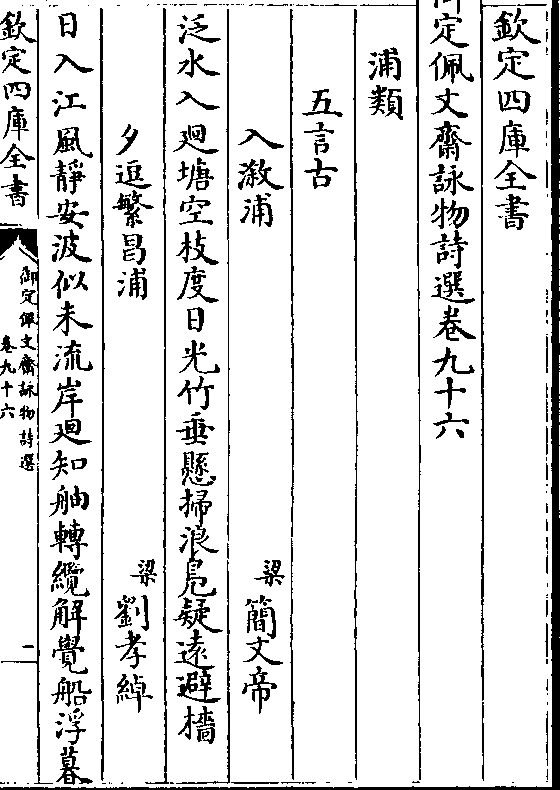 欽定四庫全書
御定佩文齋詠物詩選卷九十六
浦類
五言古
入漵浦
梁簡文帝
泛水入廻塘空枝度日光竹垂懸掃浪鳧疑遠避檣
夕逗繁昌浦
梁劉孝綽
日入江風靜安波似未流岸廻知舳轉纜解覺船浮暮
欽定四庫全書
御定佩文齋詠物詩選
卷九十六
一